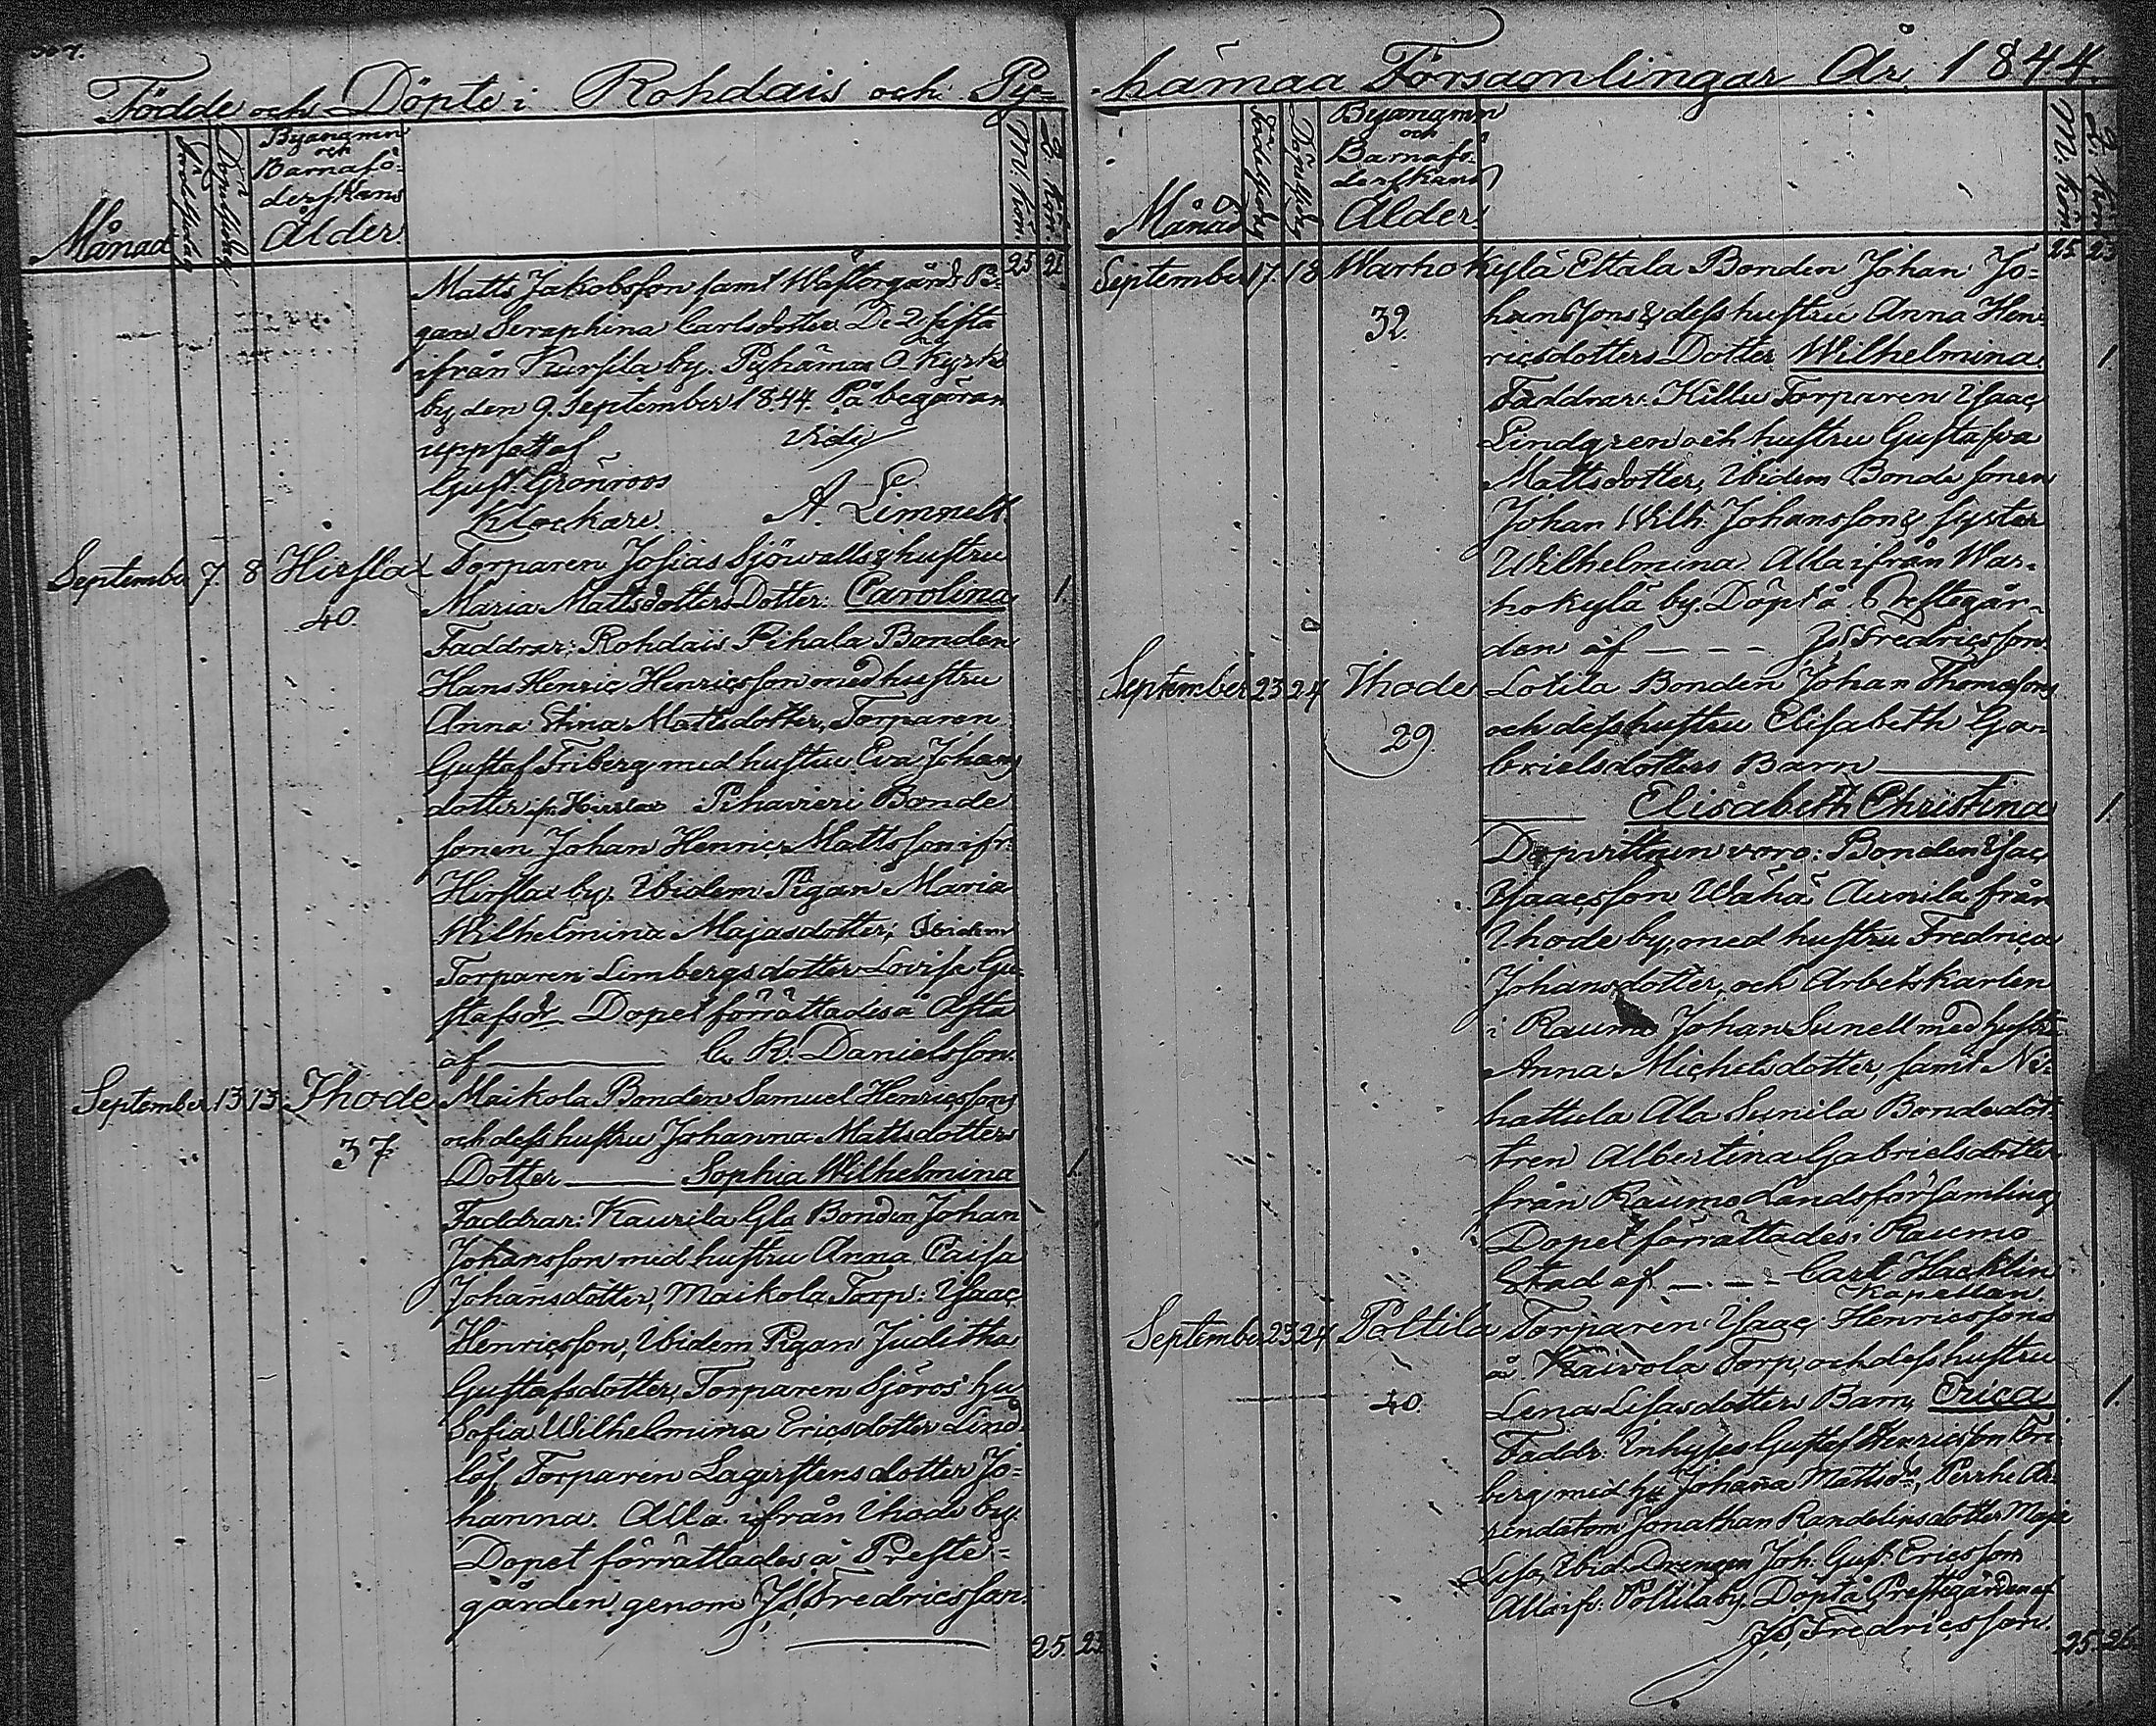 Födde och Döpte i Rohdais och Py-
Månad
Födelsedag
Döpelsedag
Byanamn
och
Barnafö-
derskans
Ålder.
M. kön.
Q. kön.
25 21
Matts Jakobsson samt Wästergård Pi-
gan Seraphina Carlsdotter. De 2 sista
ifrån Kursila by. Pyhämaa O. Kyrko
by den 9. September 1844. På begäran
uppsatt af Vidi
Gust. Grönroos
Klockare. A. Limnell
September 7 8 Hirslax Torparen Josias Sjöwalls & hustru
40. Maria Mattsdotters Dotter: Carolina 1
Faddrar: Rohdais Pihala Bonden
Hans Henric Henricsson med hustru
Anna Stina Mattsdotter, Torparen
Gustaf Friberg med hustru Eva Johans
dotter fr. Hirslax Pihavieri Bonde
sonen Johan Henric Mattsson ifr.
Hirslax by. Ibidem Pigan Maria
Wilhelmina Majasdotter, Ibidem
Torparen Limbergs dotter Lovisa Gu-
stafsdr. Dopet förrättades å Asta
af C. R. Danielsson.
September 13 13. Ihode Maikola Bonden Samuel Henricssons
37 och dess hustru Johanna Mattsdotters
Dotter Sophia Wilhelmina 1.
Faddrar: Kaurila Gla Bonden Johan
Johansson med hustru Anna Caisa
Johansdotter, Maikola Torp: Isaac
Henricsson, Ibidem Pigan Juditha
Gustafsdotter, Torparen Sjöros' hu
Sofia Wilhelmina Ericsdotter Lind-
löf, Torparen Lagerstens dotter Jo-
hanna. Alla ifrån Ihode by.
Dopet förrättades å Preste-
gården genom Js. Fredricsson.
25. 23
hämaa Församlingar År 1844
Månad
Födelsedag
Döpelsedag
Byanamn
och
Barnafö-
derskans
Ålder
M. kön
Q. kön
25 23
September 17. 18 Warhokylä Ettala Bonden Johan Jo-
32. hanssons & dess hustru Anna Hen-
ricsdotters Dotter Wilhelmina 1
Faddrar: Killu Torparen Isaac
Lindgren och hustru Gustafva
Mattsdotter, Ibidem Bonde sonen
Johan Wilh. Johansson & syster
Wilhelmina. Alla ifrån War-
hokylä by. Döpt å Prestegår-
den af Js. Fredricsson.
September 23 24 Ihode Lotila Bonden Johan Thomassons
29. och dess hustru Elisabeth Ga-
brielsdotters Barn
Elisabeth Christina 1
Dopvittnen voro: Bonden Isac
Isaacsson Wähä Aunila från
Ihode by, med hustru Fredrica
Johansdotter, och Arbetskarlen
i Raumo Johan Sunell med hustr.
Anna Michelsdotter, samt Ni-
hattula Ala Sunila Bondedot-
tren Albertina Gabrielsdotter
från Raumo Landsförsamling
Dopet förrättades i Raumo
Stad af Carl Hacklin
Kapellan.
September 23 24 Poltila Torparen Isaac Henricssons
å Kaivola Torp, och dess hustru
40. Lena Lisasdotters Barn, Erica 1.
Faddr: Inhyses Gustaf Henricsson
berg med hu Johana Mattsdr, Perrhe Ar-
rendatorn Jonathan Randelins dotter Maja
Lisa, Ibid. Drengen Joh. Gust. Ericsson
Alla ifr. Poltila by. Döpt å Prestegården af
Js. Fredricsson.
25. 26